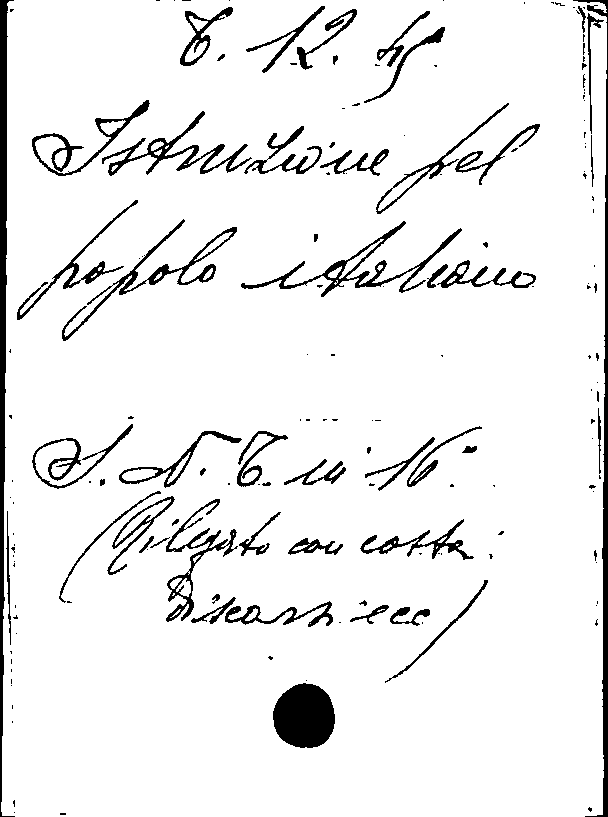 C. 12. 45
Istruzione pel
popolo italiano
S. N. T. in 16°
(Rilegato con costa:
Discorsi ecc)